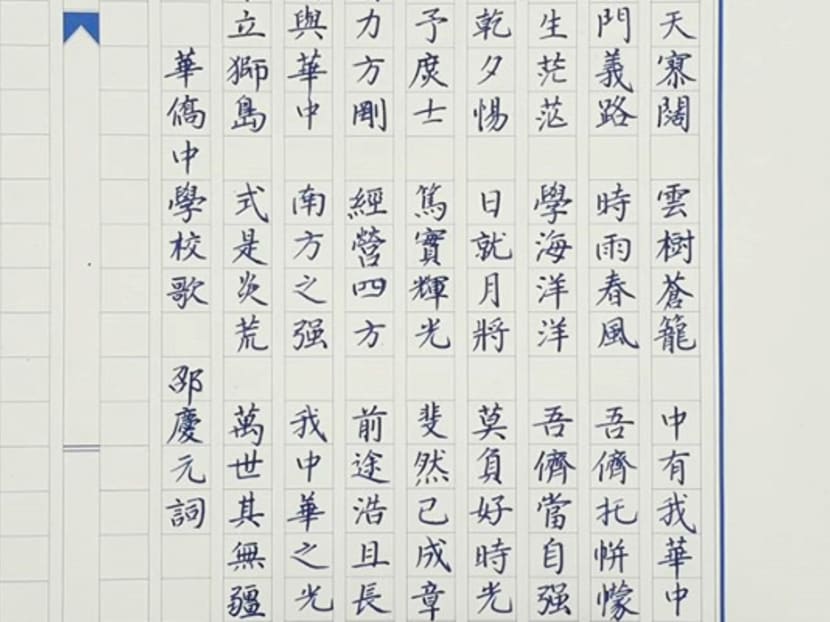 天寥闊 雲樹蒼籠 中有我華中
門義路 時雨春風 吾儕托帡幪
生茫茫 學海洋洋 吾儕當自强
乾夕惕 日就月將 莫負好時光
予庶士 篤實輝光 斐然已成章
力方剛 經營四方 前途浩且長
與華中 南方之强 我中華之光
立獅島 式是炎荒 萬世其無疆
華僑中學校歌 邵慶元詞